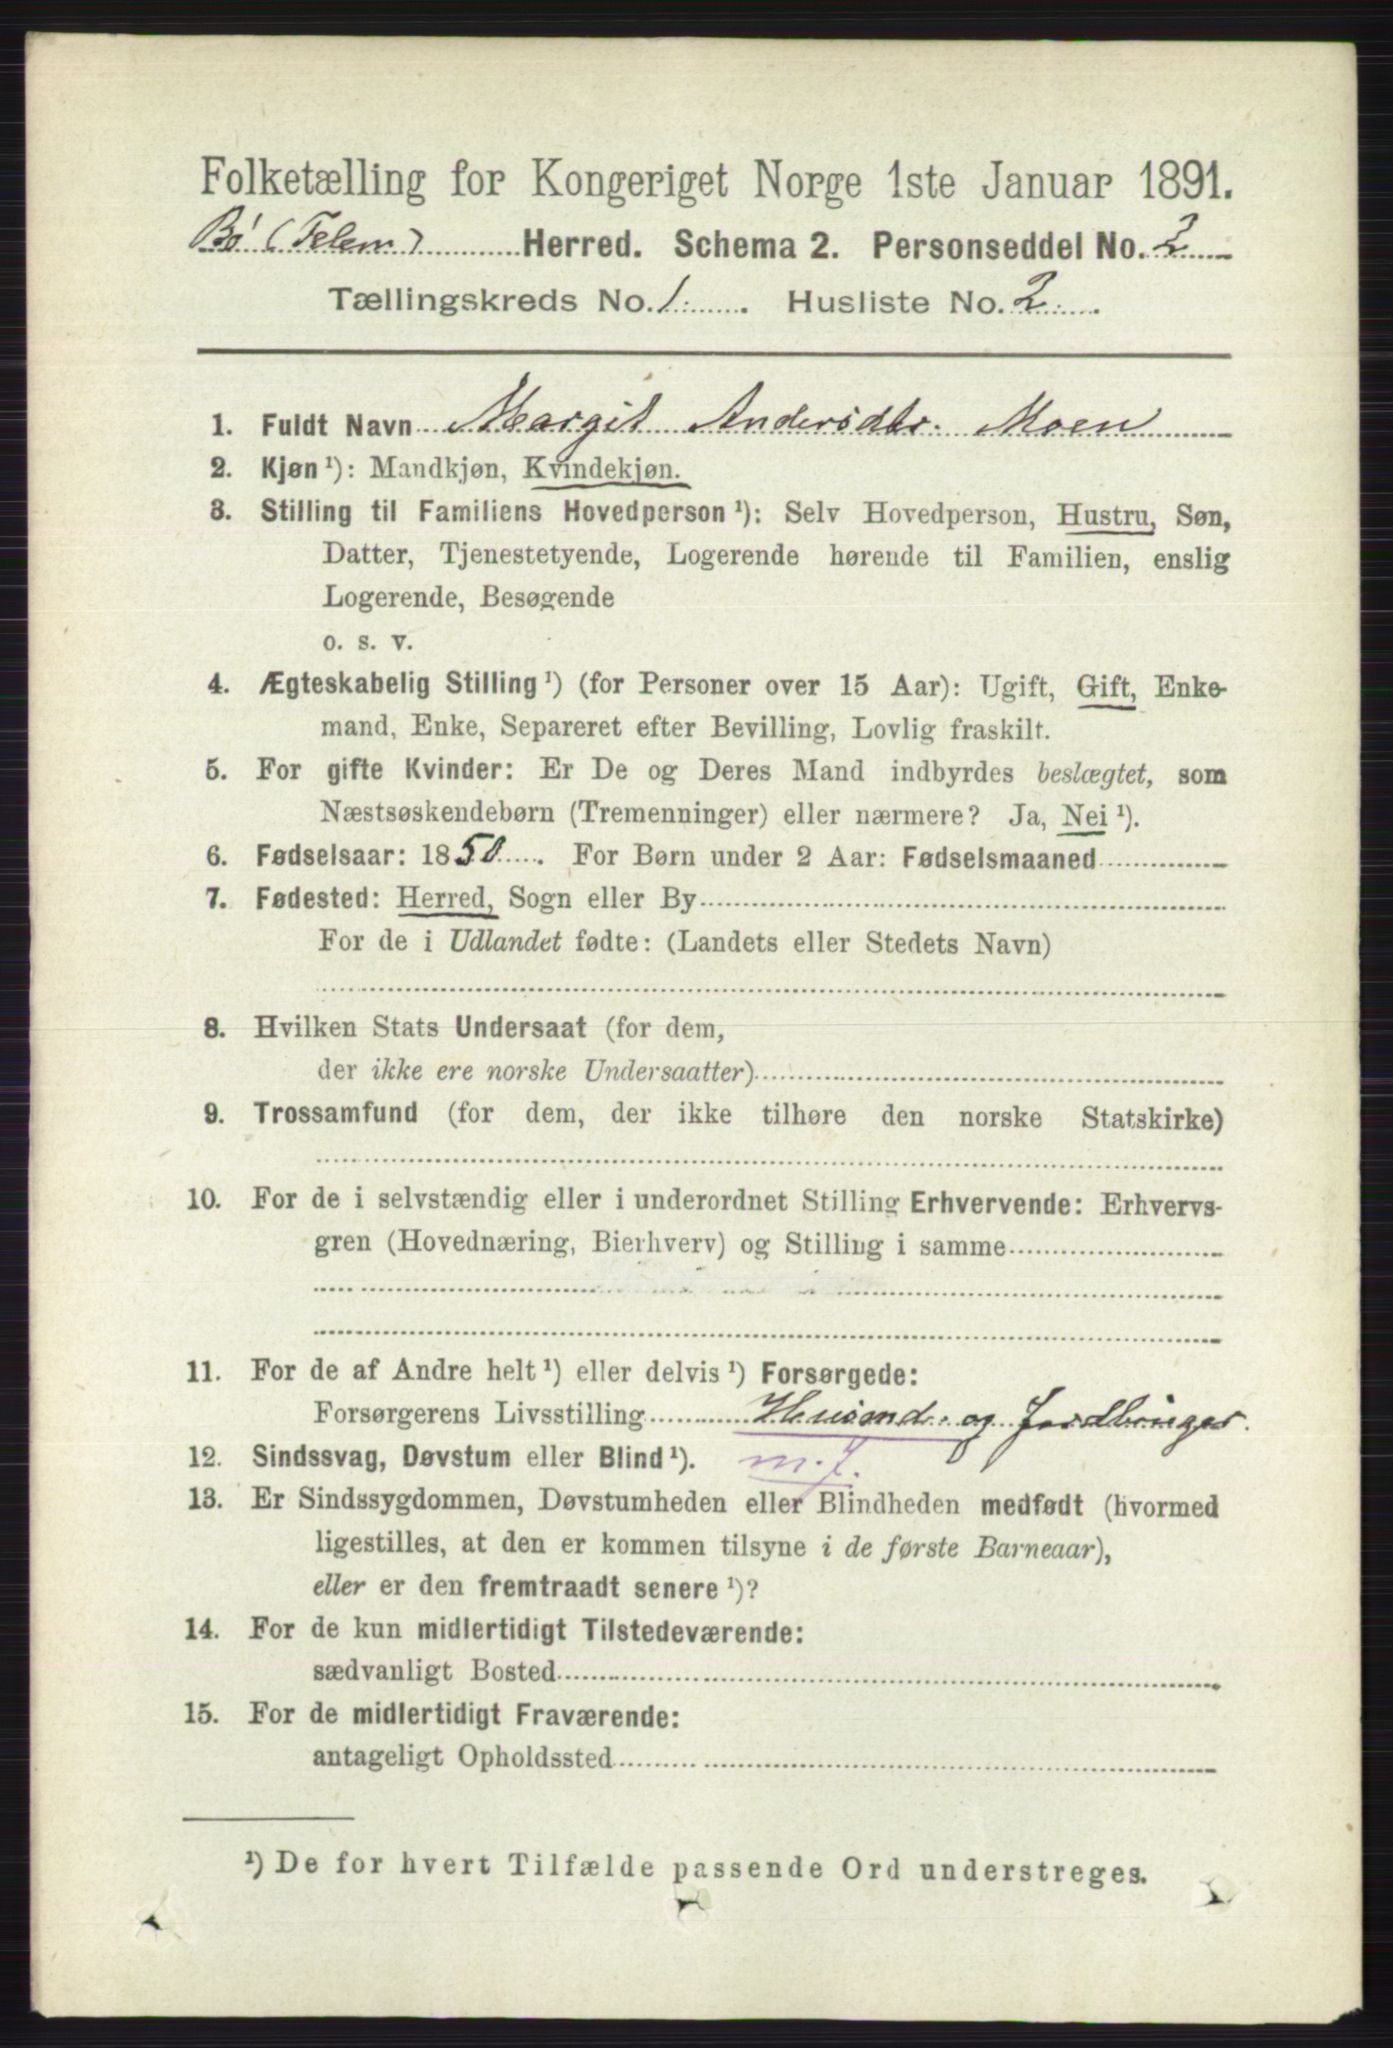 Folketælling for Kongeriget Norge 1ste Januar 1891.
Bø (Telem) Herred. Schema 2. Personseddel No. 2
Tællingskreds No. 1. Husliste No. 2.
1. Fuldt Navn Margit Andersdtr. Moen
2. Kjøn ¹): Mandkjøn, Kvindekjøn.
3. Stilling til Familiens Hovedperson ¹): Selv Hovedperson, Hustru, Søn,
Datter, Tjenestetyende, Logerende hørende til Familien, enslig
Logerende, Besøgende
o. s. v.
4. Ægteskabelig Stilling ¹) (for Personer over 15 Aar): Ugift, Gift, Enke-
mand, Enke, Separeret efter Bevilling, Lovlig fraskilt.
5. For gifte Kvinder: Er De og Deres Mand indbyrdes beslægtet, som
Næstsøskendebørn (Tremenninger) eller nærmere? Ja, Nei ¹).
6. Fødselsaar: 1850. For Børn under 2 Aar: Fødselsmaaned
7. Fødested: Herred, Sogn eller By
For de i Udlandet fødte: (Landets eller Stedets Navn)
8. Hvilken Stats Undersaat (for dem,
der ikke ere norske Undersaatter)
9. Trossamfund (for dem, der ikke tilhøre den norske Statskirke)
10. For de i selvstændig eller i underordnet Stilling Erhvervende: Erhvervs-
gren (Hovednæring, Bierhverv) og Stilling i samme
11. For de af Andre helt ¹) eller delvis ¹) Forsørgede:
Forsørgerens Livsstilling Husmd. og Jordbruger.
12. Sindssvag, Døvstum eller Blind ¹). m. J.
13. Er Sindssygdommen, Døvstumheden eller Blindheden medfødt (hvormed
ligestilles, at den er kommen tilsyne i de første Barneaar),
eller er den fremtraadt senere ¹)?
14. For de kun midlertidigt Tilstedeværende:
sædvanligt Bosted
15. For de midlertidigt Fraværende:
antageligt Opholdssted
¹) De for hvert Tilfælde passende Ord understreges.